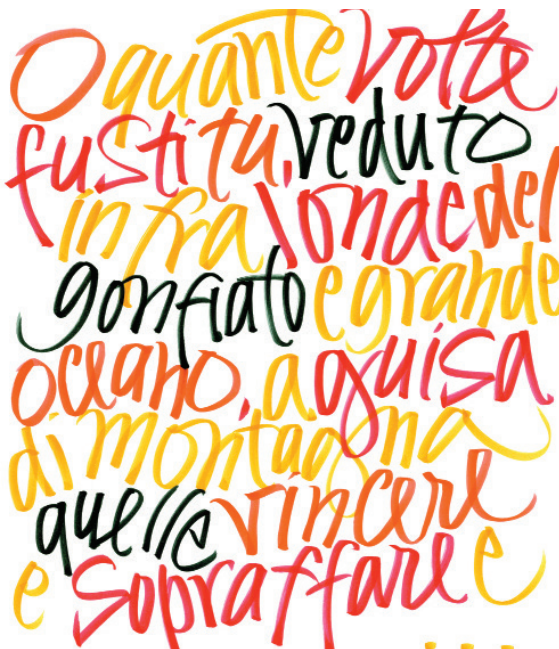 O quante volte
fusti tu, veduto
in fra l'onde del
gonfiato e grande
oceano, a guisa
di montagna
quelle vincere
e sopraffare e